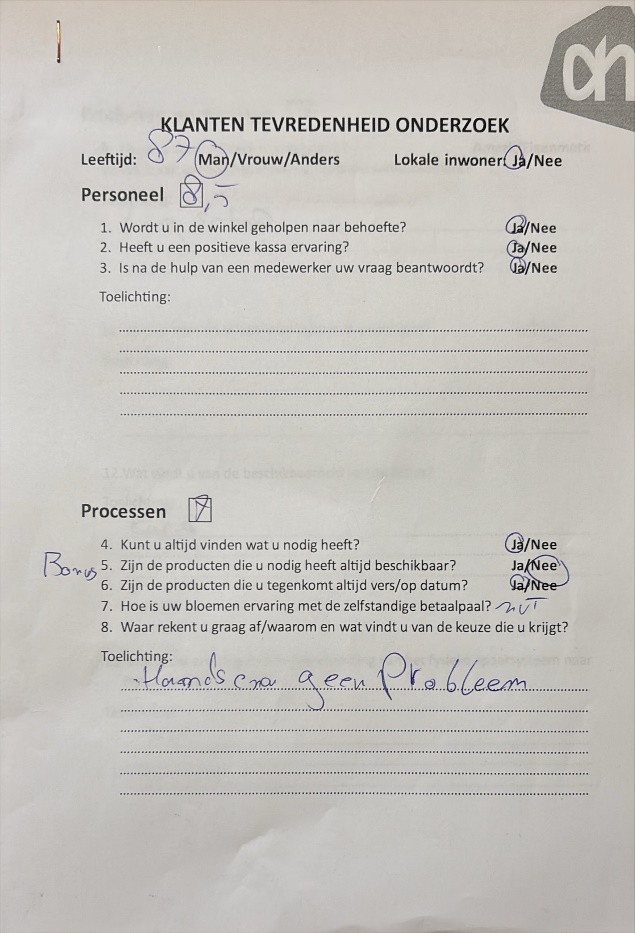 ah
KLANTEN TEVREDENHEID ONDERZOEK
Leeftijd: 87 Man/Vrouw/Anders Lokale inwoner: Ja/Nee
Personeel 8,5
1. Wordt u in de winkel geholpen naar behoefte? Ja/Nee
2. Heeft u een positieve kassa ervaring? Ja/Nee
3. Is na de hulp van een medewerker uw vraag beantwoordt? Ja/Nee
Toelichting:
Processen 7
4. Kunt u altijd vinden wat u nodig heeft? Ja/Nee
Bonus 5. Zijn de producten die u nodig heeft altijd beschikbaar? Ja/Nee
6. Zijn de producten die u tegenkomt altijd vers/op datum? Ja/Nee
7. Hoe is uw bloemen ervaring met de zelfstandige betaalpaal?
8. Waar rekent u graag af/waarom en wat vindt u van de keuze die u krijgt?
Toelichting:
geen Probleem